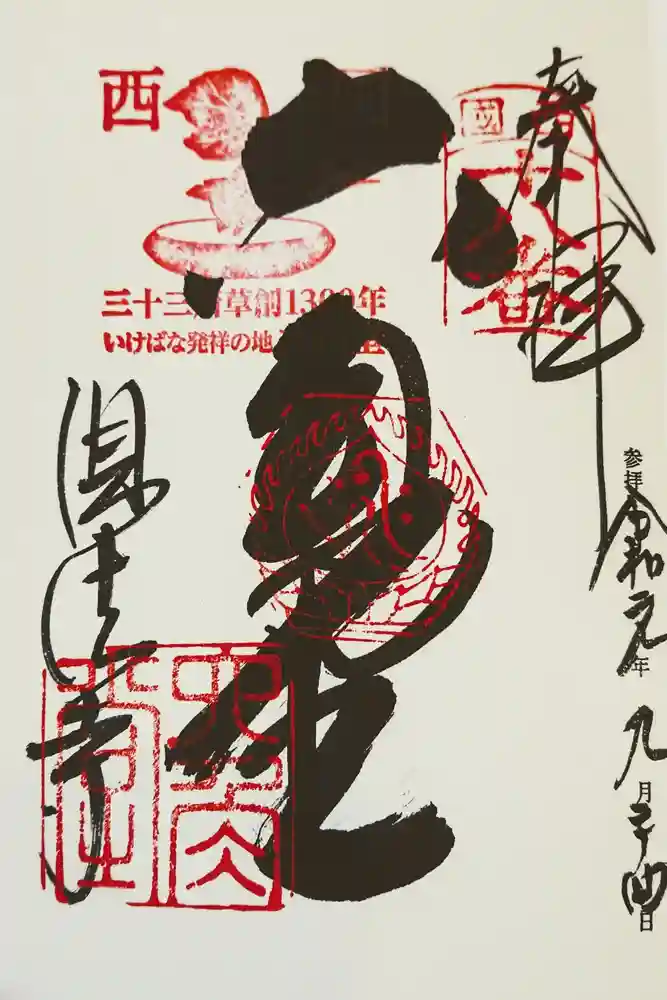 奉拝
参拝 令和元年 九月二十四日
西国
十八番
六角堂
西国
三十三所草創1300年
いけばな発祥の地
頂法寺